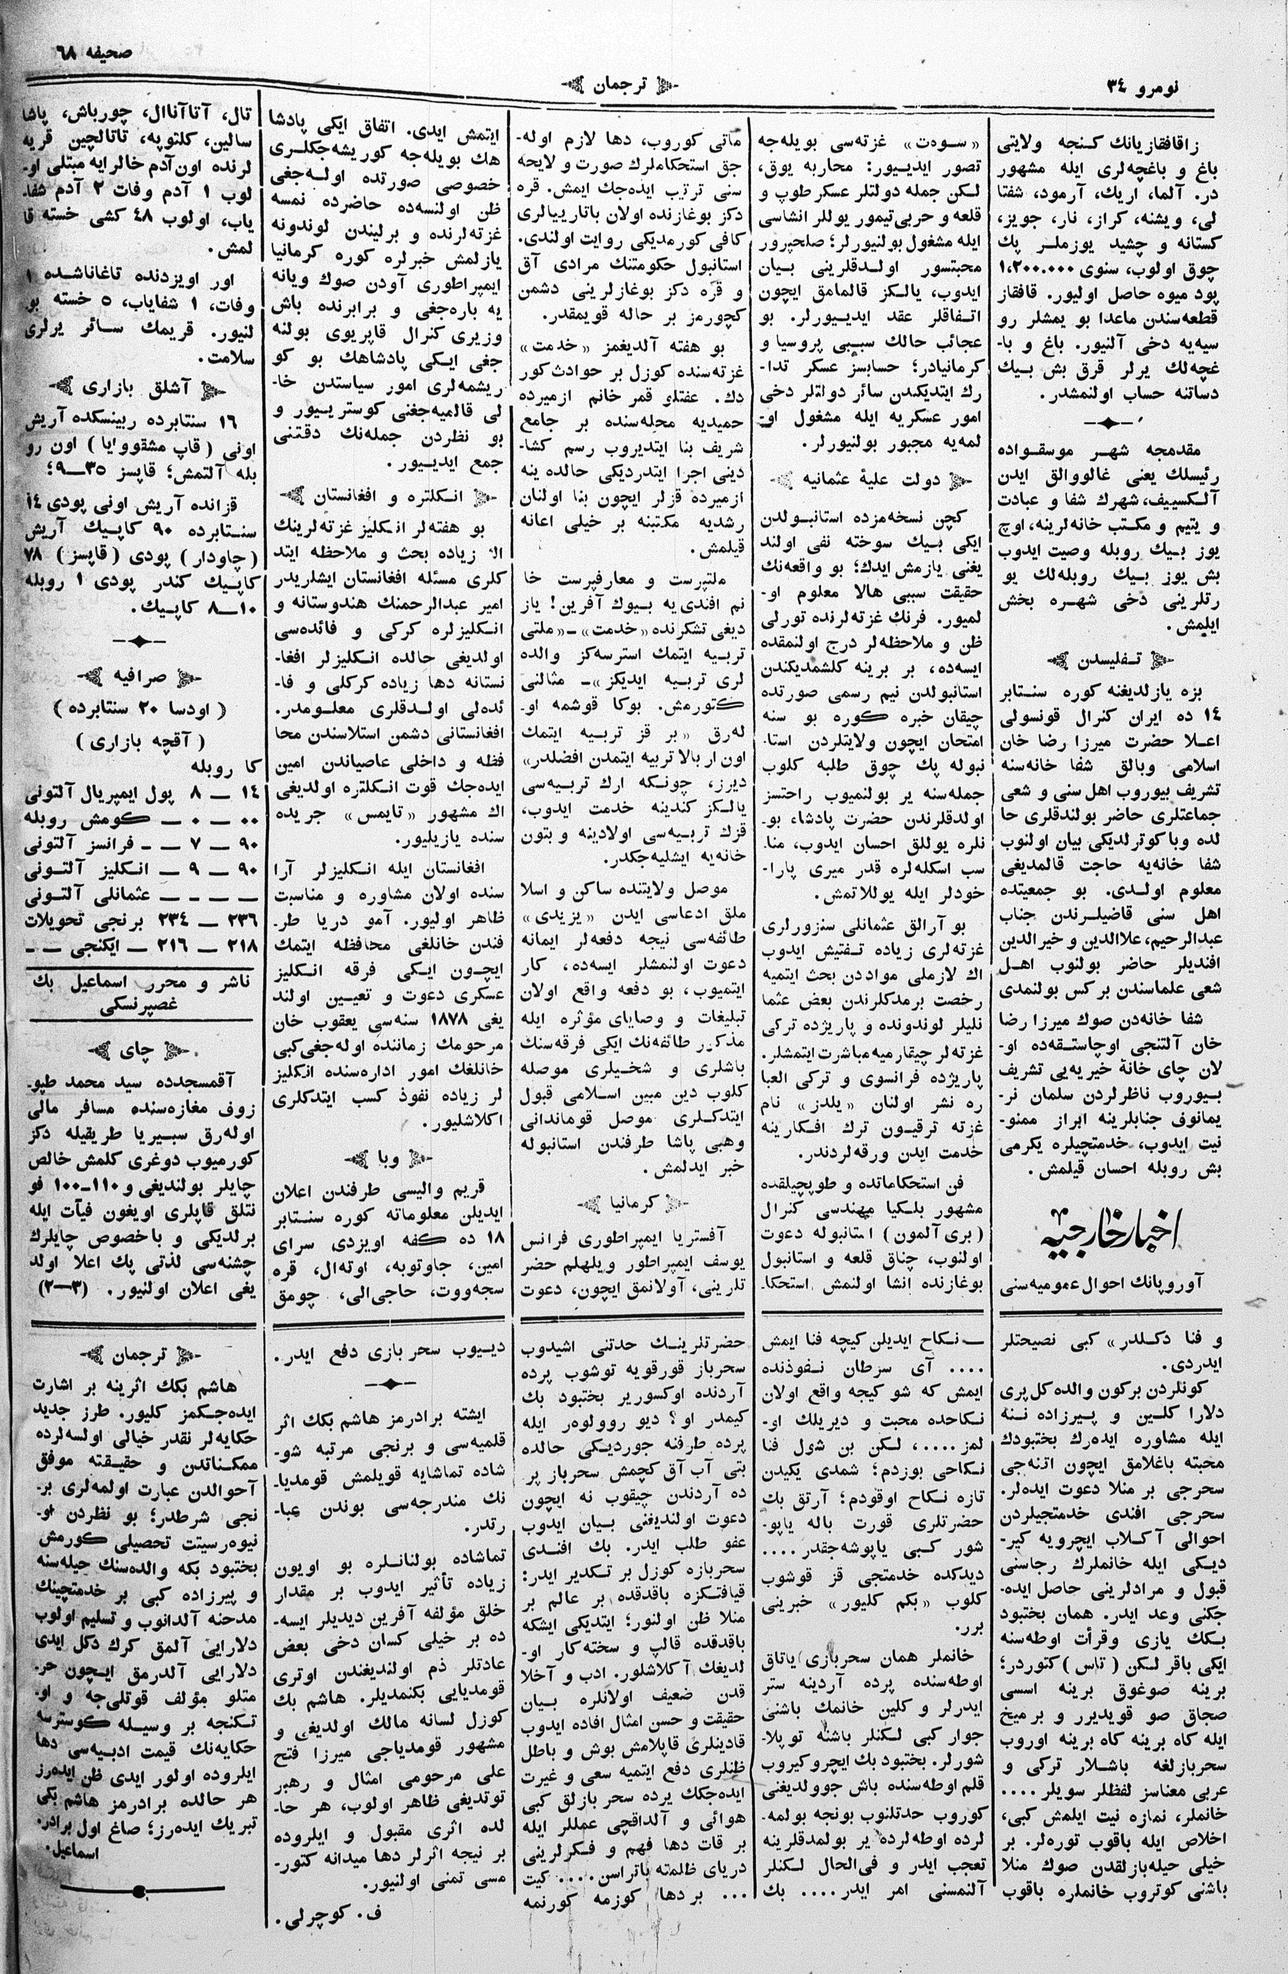 نومرو ٣٤
ترجمان
صحیفه ٦٨
زاقافقازیانك كنجه ولایتی
باغ و باغچه‌لری ایله مشهور
در. آلما، اریك، آرمود، شفتا
لی، ویشنه، كراز، نار، جویز،
كستانه و چشید یوزملر پك
چوق اولوب، سنوی ١،٢٠٠،٠٠٠
پود میوه حاصل اولیور. قافقاز
قطعه‌سندن ماعدا بو یمشلر رو
سیه‌یه دخی آلنیور. باغ و با-
غچه‌لك یرلر قرق بش بیك
دساتنه حساب اولنمشدر.
مقدمجه شهر موسقواده
رئیسلك یعنی غالووالق ایدن
آلكسییف، شهرك شفا و عبادت
و یتیم و مكتب خانه‌لرینه، اوچ
یوز بیك روبله وصیت ایدوب
بش یوز بیك روبله‌لك یو
رتلرینی دخی شهره بخش
ایلمش.
تفلیسدن
بزه یازلدیغنه كوره سنتابر
١٤ ده ایران كنرال قونسولی
اعلا حضرت میرزا رضا خان
اسلامی وبالق شفا خانه‌سنه
تشریف بیوروب اهل سنی و شعی
جماعتلری حاضر بولندقلری حا
لده وبا كوترلدیكی بیان اولنوب
شفا خانه‌یه حاجت قالمدیغی
معلوم اولدی. بو جمعیتده
اهل سنی قاضیلرندن جناب
عبدالرحیم، علاالدین و خیرالدین
افندیلر حاضر بولنوب اهل
شعی علماسندن بر كس بولنمدی
شفا خانه‌دن صوك میرزا رضا
خان آلتنجی اوچاستقه‌ده او-
لان چای خانهٔ خیریه‌یی تشریف
بیوروب ناظر لردن سلمان نر-
یمانوف جنابلرینه ابراز ممنو-
نیت ایدوب، خدمتچیلره یكرمی
بش روبله احسان قیلمش.
اخبار خارجیه
آوروپانك احوال عمومیه‌سنی
«سوه‌ت» غزته‌سی بویله‌جه
تصور ایدیور: محاربه یوق،
لكن جمله دولتلر عسكر طوپ و
قلعه و حربی تیمور یوللر انشاسی
ایله مشغول بولنیورلر؛ صلحپرور
محبتسور اولدقلرینی بیان
ایدوب، یالكز قالمامق ایچون
اتفاقلر عقد ایدیورلر. بو
عجائب حالك سببی پروسیا و
كرمانیادر؛ حسابسز عسكر تدا-
رك ایتدیكدن سائر دولتلر دخی
امور عسكریه ایله مشغول او-
لمه‌یه مجبور بولنیورلر.
دولت علیهٔ عثمانیه
كچن نسخه‌مزده استانبولدن
ایكی بیك سوخته نفی اولند
یغنی یازمش ایدك؛ بو واقعه‌نك
حقیقت سببی هالا معلوم او-
لمیور. فرنك غزته‌لرنده تورلی
ظن و ملاحظه‌لر درج اولنمقده
ایسه‌ده، بر برینه كلشمدیكندن
استانبولدن نیم رسمی صورتده
چیقان خبره كوره بو سنه
امتحان ایچون ولایتلردن استا-
نبوله پك چوق طلبه كلوب
جمله‌سنه یر بولنمیوب راحتسز
اولدقلرندن حضرت پادشا، بو-
نلره یوللق احسان ایدوب، منا-
سب اسكله‌لره قدر میری پارا-
خودلر ایله یوللاتمش.
بو آرالق عثمانلی سنزورلری
غزته‌لری زیاده تفتیش ایدوب
اك لازملی مواددن بحث ایتمیه
رخصت برمدكلرندن بعض عثما
نلیلر لوندونده و پاریژده تركی
غزته‌لر چیقارمیه مباشرت ایتمشلر.
پاریژده فرانسوی و تركی العبا
ره نشر اولنان «یلدز» نام
غزته ترقیون ترك افكارینه
خدمت ایدن ورقه‌لردندر.
فن استحكاماتده و طوپچیلقده
مشهور بلكیا مهندسی كنرال
(بری آلمون) استانبوله دعوت
اولنوب، چناق قلعه و استانبول
بوغازنده انشا اولنمش استحكا-
ماتی كوروب، دها لازم اوله-
جق استحكاملرك صورت و لایحه
سنی ترتیب ایده‌جك ایمش. قره
دكز بوغازنده اولان باتاریيالری
كافی كورمدیكی روایت اولندی.
استانبول حكومتنك مرادی آق
و قره دكز بوغازلرینی دشمن
كچورمز بر حاله قویمقدر.
بو هفته آلدیغمز «خدمت»
غزته‌سنده كوزل بر حوادث كور
دك. عفتلو قمر خانم ازمیرده
حمیدیه محله‌سنده بر جامع
شریف بنا ایتدیروب رسم كشا-
دینی اجرا ایتدردیكی حالده ینه
ازمیرده قزلر ایچون بنا اولنان
رشدیه مكتبنه بر خیلی اعانه
قیلمش.
ملتپرست و معارفپرست خا
نم افندی‌یه بیوك آفرین! یاز
دیغی تشكرنده «خدمت» ـ «ملتی
تربیه ایتمك استرسه‌كز والده
لری تربیه ایدیكز» ـ مثالنی
كتورمش. بوكا قوشمه او-
له‌رق «بر قز تربیه ایتمك
اون ار بالا تربیه ایتمدن افضلدر»
دیرز، چونكه ارك تربیه‌سی
یالكز كندینه خدمت ایدوب،
قزك تربیه‌سی اولادینه و بتون
خانه‌یه ایشلیه‌جكدر.
موصل ولایتنده ساكن و اسلا
ملق ادعاسی ایدن «یزیدی»
طائفه‌سی نیجه دفعه‌لر ایمانه
دعوت اولنمشلر ایسه‌ده، كار
ایتمیوب، بو دفعه واقع اولان
تبلیغات و وصایای مؤثره ایله
مذكور طائفه‌نك ایكی فرقه‌سنك
باشلری و شخیلری موصله
كلوب دین مبین اسلامی قبول
ایتدكلری موصل قوماندانی
وهبی پاشا طرفندن استانبوله
خبر ایدلمش.
كرمانیا
آفستریا ایمپراطوری فرانس
یوسف ایمپراطور ویلهلم حضر
تلرینی، آولانمق ایچون، دعوت
ایتمش ایدی. اتفاق ایكی پادشا
هك بویله‌جه كوریشه‌جكلری
خصوصی صورتده اوله‌جغی
ظن اولنسه‌ده حاضرده نمسه
غزته‌لرنده و برلیندن لوندونه
یازلمش خبرلره كوره كرمانیا
ایمپراطوری آودن صوك ویانه
یه باره‌جغی و برابرنده باش
وزیری كنرال قاپریوی بولنه
جغی ایكی پادشاهك بو كو
ریشمه‌لری امور سیاستدن خا-
لی قالمیه‌جغنی كوستریور و
بو نظردن جمله‌نك دقتنی
جمع ایدیور.
انكلتره و افغانستان
بو هفته‌لر انكلیز غزته‌لرینك
الك زیاده بحث و ملاحظه ایتد
كلری مسئله افغانستان ایشلریدر
امیر عبدالرحمنك هندوستانه و
انكلیزلره كركی و فائده‌سی
اولدیغی حالده انكلیزلر افغا-
نستانه دها زیاده كركلی و فا-
ئده‌لی اولدقلری معلومدر.
افغانستانی دشمن استلاسندن محا
فظه و داخلی عاصیاندن امین
ایده‌جك قوت انكلتره اولدیغی
اك مشهور «تایمس» جریده
سنده یازیلیور.
افغانستان ایله انكلیزلر آرا
سنده اولان مشاوره و مناسبت
ظاهر اولیور. آمو دریا طر-
فندن خانلغی محافظه ایتمك
ایچون ایكی فرقه انكلیز
عسكری دعوت و تعیین اولند
یغی ١٨٧٨ سنه‌سی یعقوب خان
مرحومك زماننده اوله‌جغی‌كبی
خانلغك امور اداره‌سنده انكلیز
لر زیاده نفوذ كسب ایتدكلری
اكلاشلیور.
وبا
قریم والیسی طرفندن اعلان
ایدیلن معلوماته كوره سنتابر
١٨ ده كفه اویزدی سرای
امین، جاوتوبه، اوته‌ال، قره
سجه‌ووت، حاجی‌الی، چومق
تال، آتاآناال، چورباش، پاشا
سالین، كلتوپه، تاتالچین قریه
لرنده اون آدم خالرایه مبتلی او-
لوب ١ آدم وفات ٢ آدم شفا
یاب، اولوب ٤٨ كشی خسته قا
لمش.
اور اویزدنده تاغاناشده ١
وفات، ١ شفایاب، ٥ خسته بو
لنیور. قریمك سائر یرلری
سلامت.
آشلق بازاری
١٦ سنتابرده ریبنسكده آریش
اونی (قاپ مشقووایا) اون رو
بله آلتمش؛ قاپسز ٣٥ــ٩؛
قزانده آریش اونی پودی ١٤
سنتابرده ٩٠ كاپیك آریش
(چاودار) پودی (قاپسز) ٧٨
كاپیك كندر پودی ١ روبله
١٠ــ٨ كاپیك.
صرافیه
(اودسا ٢٠ سنتابرده)
(آقچه بازاری)
كا روبله
١٤ ــ ٨ پول ایمپریال آلتونی
٠٠ ــ ٠ ــ كومش روبله
٩٠ ــ ٧ ــ فرانسز آلتونی
٩٠ ــ ٩ ــ انكلیز آلتونی
ــ ــ ــ عثمانلی آلتونی
٢٣٦ ــ ٢٣٤ برنجی تحویلات
٢١٨ ــ ٢١٦ ــ ایكنجی ــ
ناشر و محرر اسماعیل بك
غصپرنسكی
چای
آقمسجدده سید محمد طپو-
زوف مغازه‌سنده مسافر مالی
اوله‌رق سبیریا طریقیله دكز
كورمیوب دوغری كلمش خالص
چایلر بولندیغی و ١١٠ــ١٠٠ فو
نتلق قاپلری اویغون فیآت ایله
برلدیكی و باخصوص چایلرك
چشنه‌سی لذتی پك اعلا اولد
یغی اعلان اولنیور. (٣ــ٢)
و فنا دكلدر» كبی نصیحتلر
ایدردی.
كونلردن بركون والده كل پری
دلارا كلین و پیرزاده ننه
ایله مشاوره ایده‌رك بختبودك
محبته باغلامق ایچون اتنه‌جی
سحرجی بر منلا دعوت ایده‌لر.
سحرجی افندی خدمتجیلردن
احوالی آكلاب ایچرویه كیر-
دیكی ایله خانملرك رجاسنی
قبول و مرادلرینی حاصل ایده-
جكنی وعد ایدر. همان بختبود
بكك یازی وقرأت اوطه‌سنه
ایكی باقر لكن (تاس) كتوردر؛
برینه صوغوق برینه اسسی
صجاق صو قویدیرر و بر میخ
ایله كاه برینه كاه برینه اوروب
سحربازلغه باشلار تركی و
عربی معناسز لفظلر سویلر ....
خانملر، نمازه نیت ایلمش كبی،
اخلاص ایله باقوب توره‌لر. بر
خیلی حیله‌بازلقدن صوك منلا
باشنی كوتروب خانملره باقوب
ــ نكاح ایدیلن كیچه فنا ایمش
.... آی سرطان نفوذنده
ایمش كه شو كیجه واقع اولان
نكاحده محبت و دیریلك او-
لمز....، لكن بن شول فنا
نكاحی بوزدم؛ شمدی یكیدن
تازه نكاح اوقودم؛ آرتق بك
حضرتلری قورت باله یاپو-
شور كبی یاپوشه‌جقدر....
دیدكده خدمتجی قز قوشوب
كلوب «بكم كلیور» خبرینی
برر.
خانملر همان سحربازی یاتاق
اوطه‌سنده پرده آردینه ستر
ایدرلر و كلین خانمك باشنی
جوار كبی لكنلر باشنه توپلا-
شورلر. بختبود بك ایچروكیروب
قلم اوطه‌سنده باش جوولدیغنی
كوروب حدتلنوب بونجه بولمه-
لرده اوطه‌لرده یر بولمدقلرینه
تعجب ایدر و فی‌الحال لكنلر
آلنمسنی امر ایدر.... بك
حضرتلرینك حدتنی اشیدوب
سحرباز قورقویه توشوب پرده
آردنده اوكسوریر بختبود بك
كیمدر او؟ دیو روولوه‌ر ایله
پرده طرفنه جوردیكی حالده
بتی آب آق كچمش سحرباز پر
ده آردندن چیقوب نه ایچون
دعوت اولندیغنی بیان ایدوب
عفو طلب ایدر. بك افندی
سحربازه كوزل بر تكدیر ایدر:
قیافتكزه باقدقده بر عالم بر
منلا ظن اولنور؛ ایتدیكی ایشكه
باقدقده قالپ و سخته‌كار او-
لدیغك آكلاشلور. ادب و آخلا
قدن ضعیف اولانلره بیان
حقیقت و حسن امثال افاده ایدوب
قادینلری قاپلامش بوش و باطل
ظنلری دفع ایتمیه سعی و غیرت
ایده‌جكك یرده سحر بازلق كبی
هوائی و آلداقچی عمللر ایله
بر قات دها فهم و فكرلرینی
دریای ظلمته باتراسن.... كیت
... بر دها كوزمه كورنمه
دیوب سحر بازی دفع ایدر.
ایشته برادرمز هاشم بكك اثر
قلمیه‌سی و برنجی مرتبه شو-
شاده تماشایه قویلمش قومدیا-
نك مندرجه‌سی بوندن عبا-
رتدر.
تماشاده بولنانلره بو اویون
زیاده تأثیر ایدوب بر مقدار
خلق مؤلفه آفرین دیدیلر ایسه-
ده بر خیلی كسان دخی بعض
عادتلر ذم اولندیغندن اوتری
قومدیایی بكنمدیلر. هاشم بك
كوزل لسانه مالك اولدیغی و
مشهور قومدیاجی میرزا فتح
علی مرحومی امثال و رهبر
توتدیغی ظاهر اولوب، هر حا-
لده اثری مقبول و ایلروده
بر نیجه اثرلر دها میدانه كتور-
مسی تمنی اولنیور.
ف. كوچرلی.
ترجمان
هاشم بكك اثرینه بر اشارت
ایده‌جكمز كلیور. طرز جدید
حكایه‌لر نقدر خیالی اولسه‌لرده
ممكناتدن و حقیقته موفق
آحوالدن عبارت اولمه‌لری بر-
نجی شرطدر؛ بو نظردن او-
نیوه‌رسیتت تحصیلی كورمش
بختبود بكه والده‌سنك حیله‌سنه
و پیرزاده كبی بر خدمتچینك
مدحنه آلدانوب و تسلیم اولوب
دلارایی آلمق كرك دكل ایدی
دلارایی آلدرمق ایچون حر-
متلو مؤلف قوتلی‌جه و او-
تكنجه بر وسیله كوسترسه
حكایه‌نك قیمت ادبیه‌سی دها
ایلروده اولور ایدی ظن ایده‌رز
هر حالده برادرمز هاشم بكی
تبریك ایده‌رز؛ صاغ اول برادر.
اسماعیل.